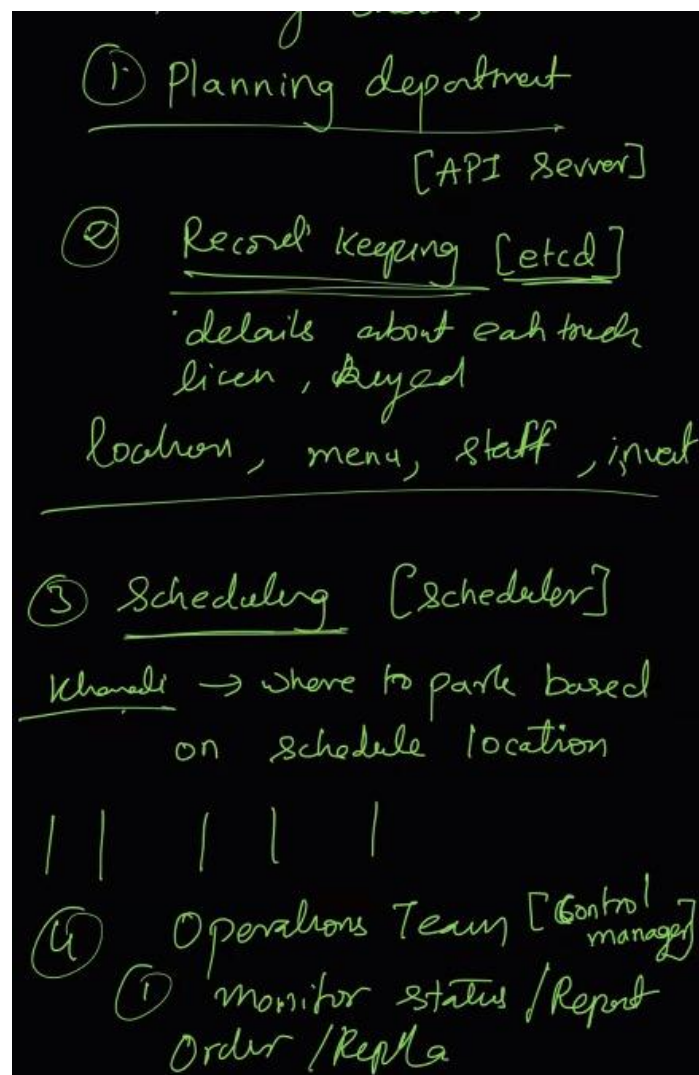 ① Planning department
[API Server]
② Record Keeping [etcd]
details about eah truck
licen,
location, menu, staff, invet
③ Scheduling [Scheduler]
→ where to park based
on schedule location
④ Operations Team [Control
manager]
① monitor status / Report
Order / Repla